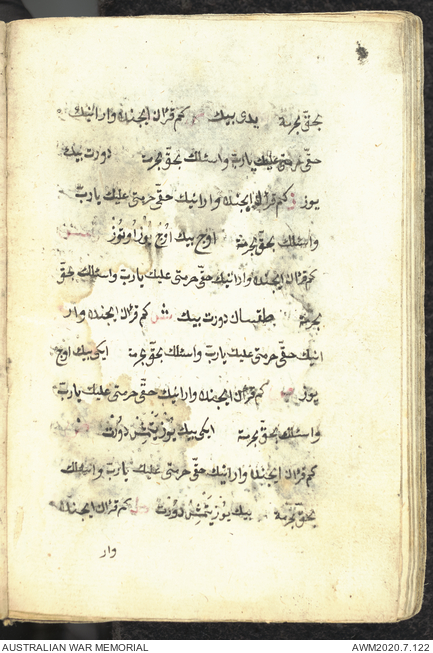 بحقّ حرمة يدى بيك كم قرآن ايچنده وار انيك
حقّى حرمتى عليك ياربّ واسئلك بحقّ حرمة دورت بيك
يوز كم قرآن ايچنده وار انيك حقّى حرمتى عليك ياربّ
واسئلك بحقّ حرمة اوج بيك اوج يوز اوتوز
كم قرآن ايچنده وار انيك حقّى حرمتى عليك ياربّ واسئلك بحقّ
حرمة طقسان دورت بيك كم قرآن ايچنده وار
انيك حقّى حرمتى عليك ياربّ واسئلك بحقّ حرمة ايكى بيك اوج
يوز كم قرآن ايچنده وار انيك حقّى حرمتى عليك ياربّ
واسئلك بحقّ حرمة ايكى بيك يوز يتمش دورت
كم قرآن ايچنده وار انيك حقّى حرمتى عليك ياربّ واسئلك
بحقّ حرمة بيك يوز يتمش دورت كم قرآن ايچنده
وار
AUSTRALIAN WAR MEMORIAL AWM2020.7.122